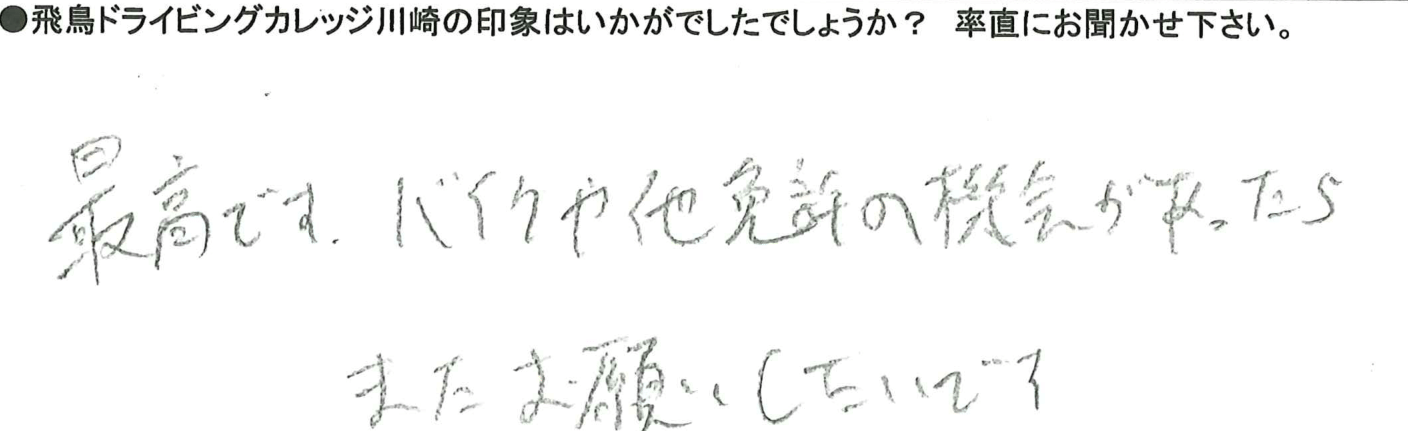 ●飛鳥ドライビングカレッジ川崎の印象はいかがでしたでしょうか？　率直にお聞かせ下さい。
最高です. バイクや他免許の機会があったら
またお願いしたいです